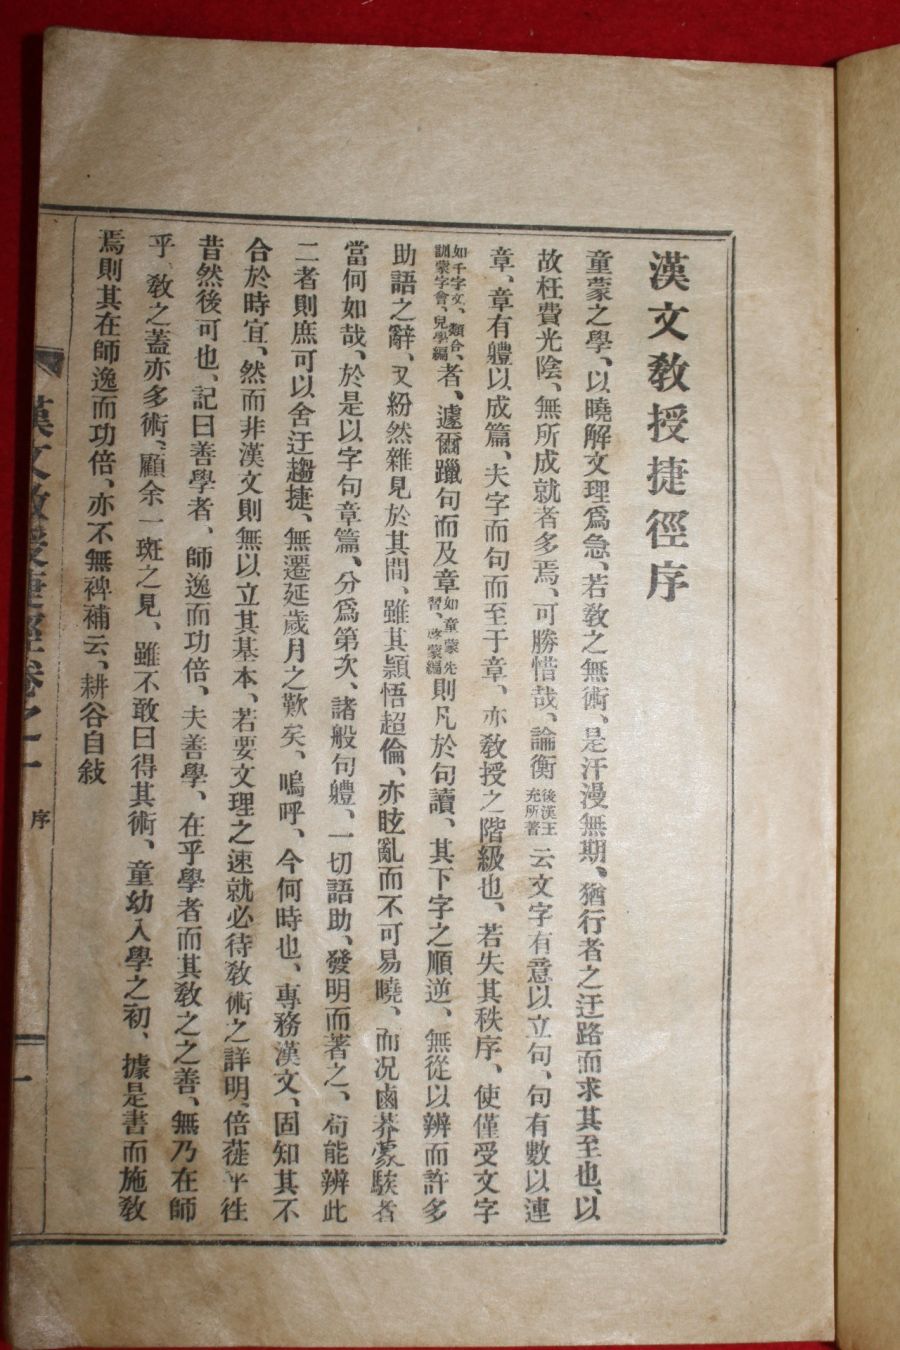 漢文敎授捷徑序
童蒙之學、以曉解文理爲急、若敎之無術、是汗漫無期、猶行者之迂路而求其至也、以
故枉費光陰、無所成就者多焉、可勝惜哉、論衡後漢王充所著云文字有意以立句、句有數以連
章、章有軆以成篇、夫字而句而至于章、亦敎授之階級也、若失其秩序、使僅受文字
如千字文、類合、訓蒙字會、兒學編者、遽爾躐句而及章如童蒙先習、啓蒙編則凡於句讀、其下字之順逆、無從以辨而許多
助語之辭、又紛然雜見於其間、雖其頴悟超倫、亦眩亂而不可易曉、而况鹵莽蒙騃者
當何如哉、於是以字句章篇、分爲第次、諸般句軆、一切語助、發明而著之、苟能辨此
二者則庶可以舍迂趨捷、無遷延歲月之歎矣、嗚呼、今何時也、專務漢文、固知其不
合於時宜、然而非漢文則無以立其基本、若要文理之速就必待敎術之詳明、倍蓰乎徃
昔然後可也、記曰善學者、師逸而功倍、夫善學、在乎學者而其敎之之善、無乃在師
乎、敎之蓋亦多術、顧余一斑之見、雖不敢曰得其術、童幼入學之初、據是書而施敎
焉則其在師逸而功倍、亦不無裨補云、耕谷自敍
漢文敎授捷徑卷之一
序
一